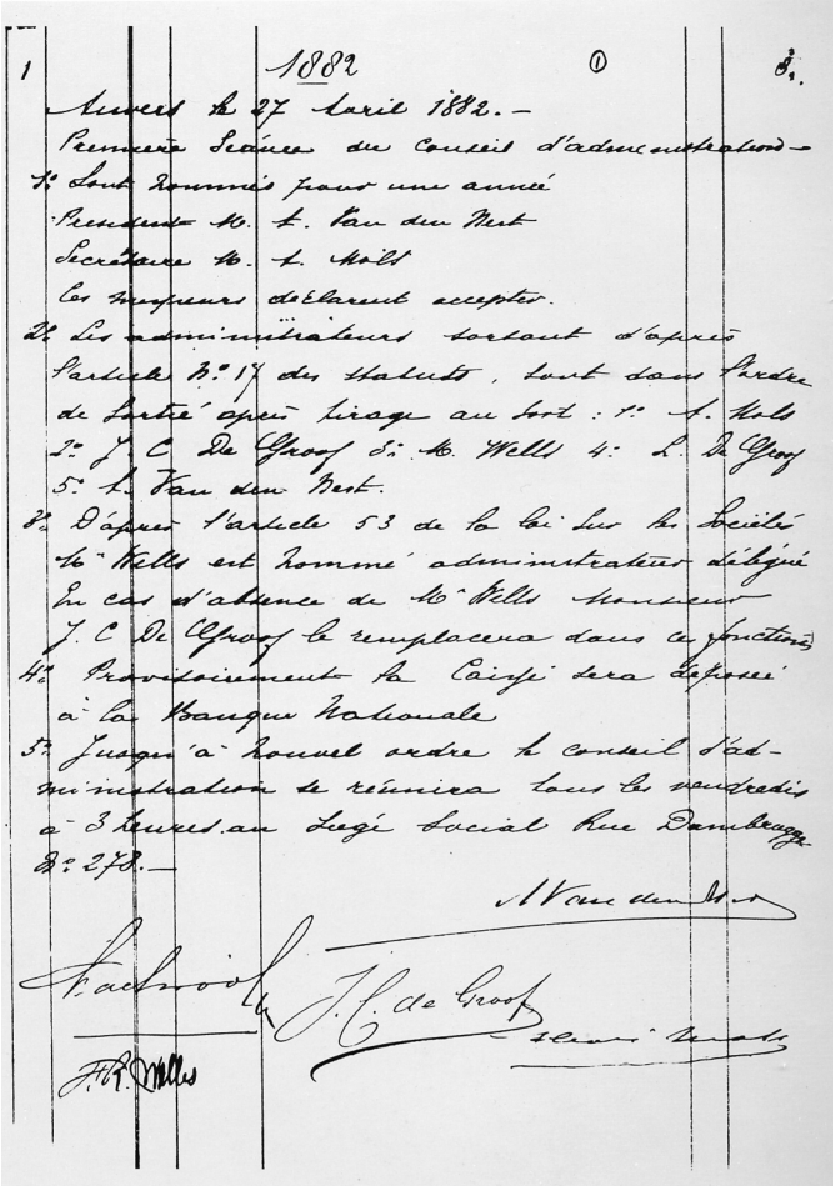 1 1882 ① 3.
Anvers le 27 Avril 1882. –
Première Séance du Conseil d'administration –
1º Sont nommés pour une année
Président M. A. Van den Nest
Secrétaire M. A. Mols
Ces messieurs déclarent accepter.
2º Les administrateurs sortant d'après
l'article Nº 17 des statuts, sont dans l'ordre
de sortie après tirage au sort : 1º A. Mols
2º J. C De Groof 3º M. Wells 4º L. De Groof
5º A. Van den Nest.
3º D'après l'article 53 de la loi sur les Sociétés
Mr Wells est nommé administrateur délégué
En cas d'absence de Mr Wells Monsieur
J. C De Groof le remplacera dans ce fonctions
4º Provisoirement la Caisse sera déposée
à la Banque Nationale
5º Jusqu'à nouvel ordre le conseil d'ad-
ministration se réunira tous les vendredis
à 3 heures au Siège Social Rue Dambrugge
Nº 278. –
A Van den Nest
J. C. de Groof
Mols
F. R. Wells